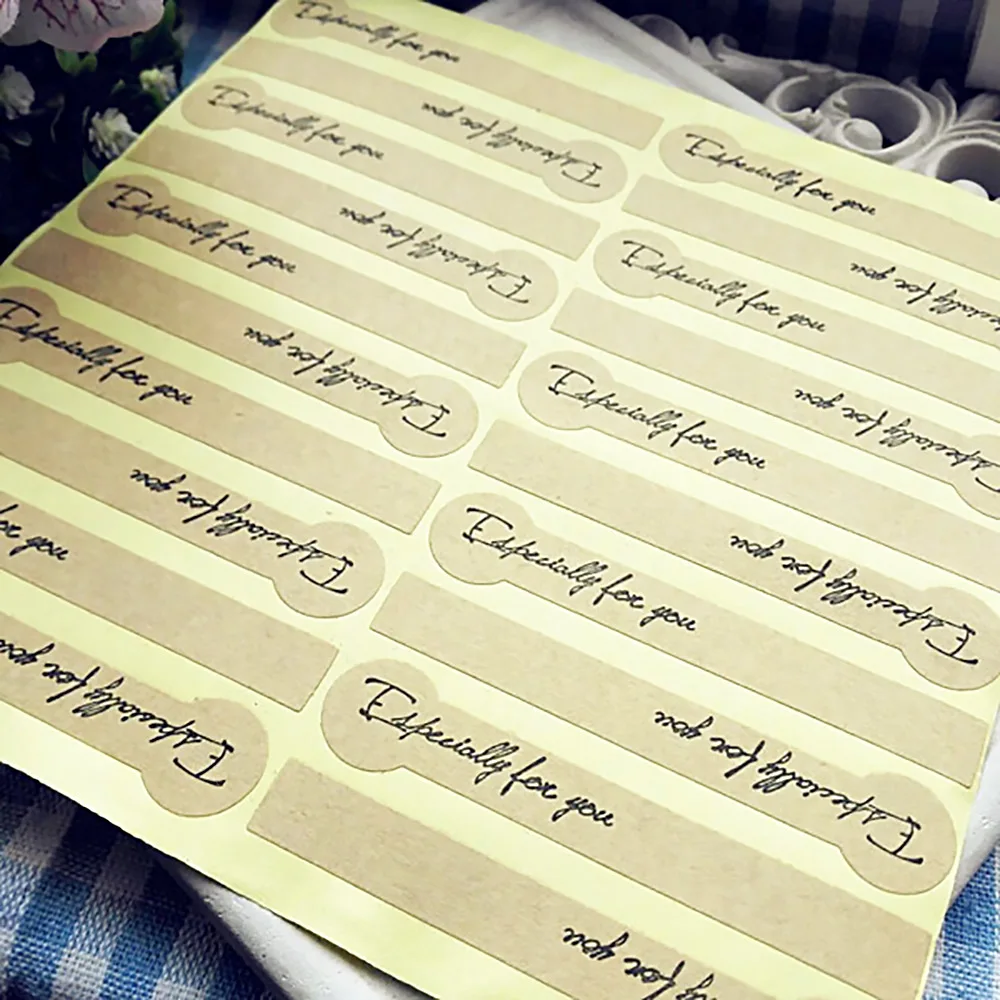 Especially for you
Especially for you
Especially for you
Especially for you
for you
Especially for you
Especially for you
Especially for you
Especially for you
Especially for you
Especially for you
Especially for you
Especially for you
Especially for you
for you
Especially for you
Especially for you
Especially for you
Especially for you
for you